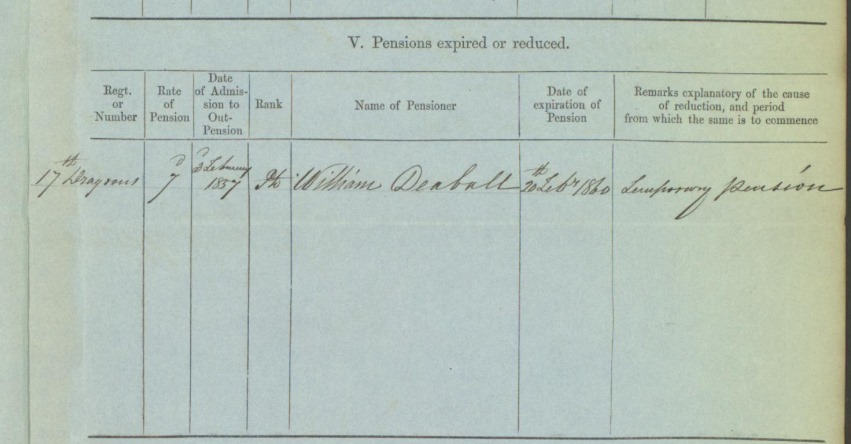 V. Pensions expired or reduced.
Regt. or Number
Rate of Pension
Date of Admis-sion to Out-Pension
Rank
Name of Pensioner
Date of expiration of Pension
Remarks explanatory of the cause of reduction, and period from which the same is to commence
17th Dragoons
7d
February 1857
William Deaball
20th Feby 1860
Temporary pension